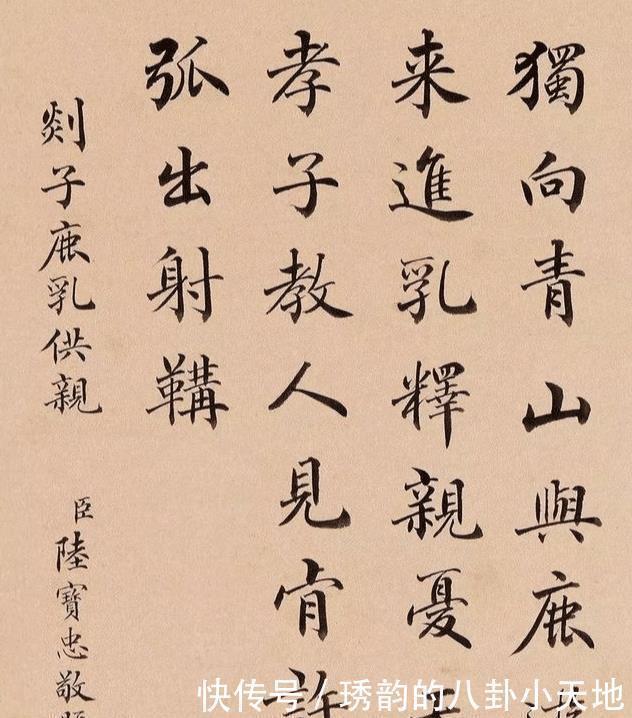 獨向青山與鹿
来進乳釋親憂
孝子教人見肯
弧出射鞲
剡子鹿乳供親
臣陸寶忠敬
快传号/琇韵的八卦小天地